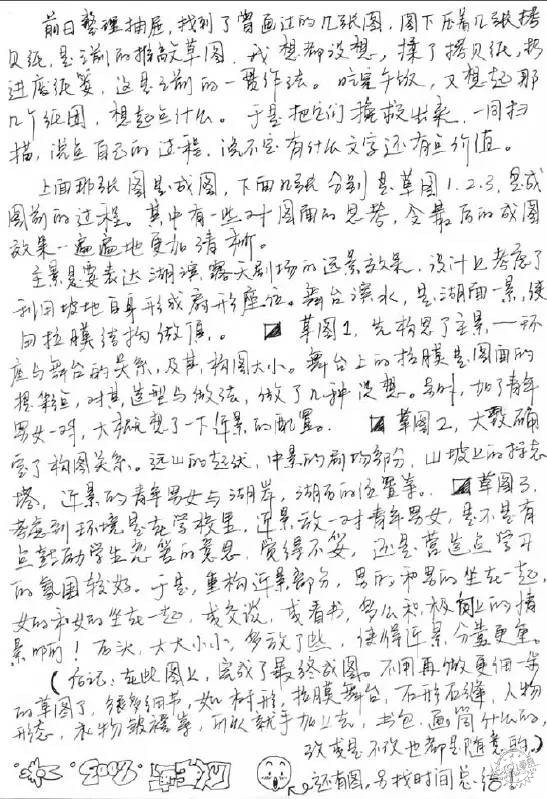 前日整理抽屉,找到了曾画过的几张图,图下压着几张拷
贝纸,是之前的推敲草图,我想都没想,揉了拷贝纸,扔
进废纸篓,这是之前的一贯作法。吃罢午饭,又想起那
几个纸团,想起点什么。于是把它们抢救出来,一同扫
描,说点自己的过程,说不定有什么文字还有点价值。
上面那张图是成图,下面几张分别是草图1.2.3,是成
图前的过程。其中有一些对图面的思考,令最后的成图
效果一遍遍地更加清晰。
主景是要表达湖滨露天剧场的远景效果,设计上考虑了
利用坡地自身形成扇形座位。舞台滨水,是湖面一景,使
用拉膜结构做顶。 草图1,先构思了主景——环
座与舞台的关系,及其构图大小。舞台上的拉膜是图面的
提案点,对其造型与做法,做了几种设想。另外,加了青年
男女一对,大概想了一下近景的配置。 草图2,大致确
定了构图关系。远山的起伏,中景的剧场部分,山坡上的标志
塔,近景的青年男女与湖岸,湖石的位置等。 草图3,
考虑到环境是在学校里,近景放一对青年男女,是不是有
点鼓励学生恋爱的意思,觉得不妥,还是营造点学习
的氛围较好。于是,重构近景部分,男的和男的坐在一起,
女的和女的坐在一起,或交谈,或看书,多么积极向上的情
景啊!石头,大大小小,多放了些,使得近景分量更重。
(后记:在此图上,完成了最终成图。不用再做更细一步
的草图了,很多细节,如树形,拉膜舞台,石形石缝,人物
形态,衣物皱褶等,所以就手加上去,书包、画筒什么的,
改或是不改也都是随意的。)
2005
还有图,另找时间总结!